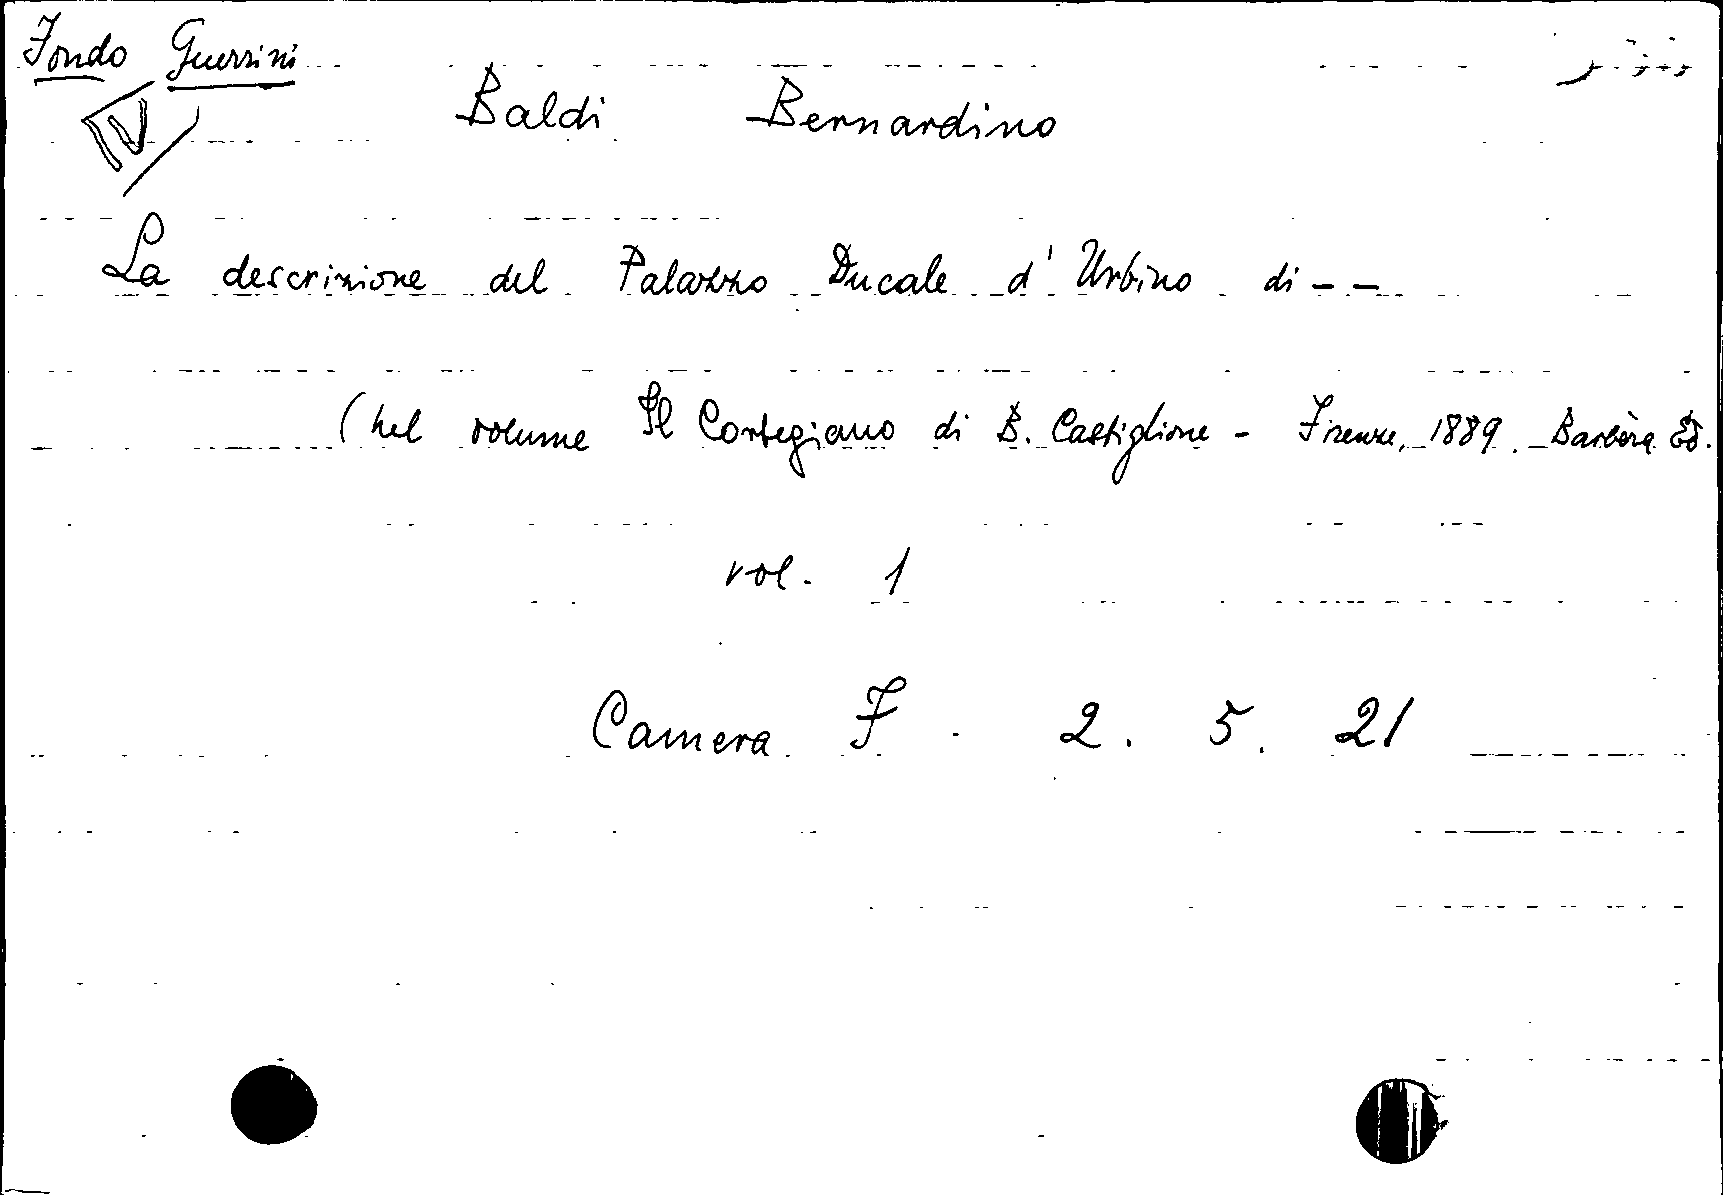 Fondo Guerrini
IV
Baldi Bernardino
La descrizione del Palazzo Ducale d' Urbino di - -
(nel volume Il Cortegiano di B. Castiglione - Firenze, 1889. Barbèra Ed.
vol. 1
Camera F. 2. 5. 21